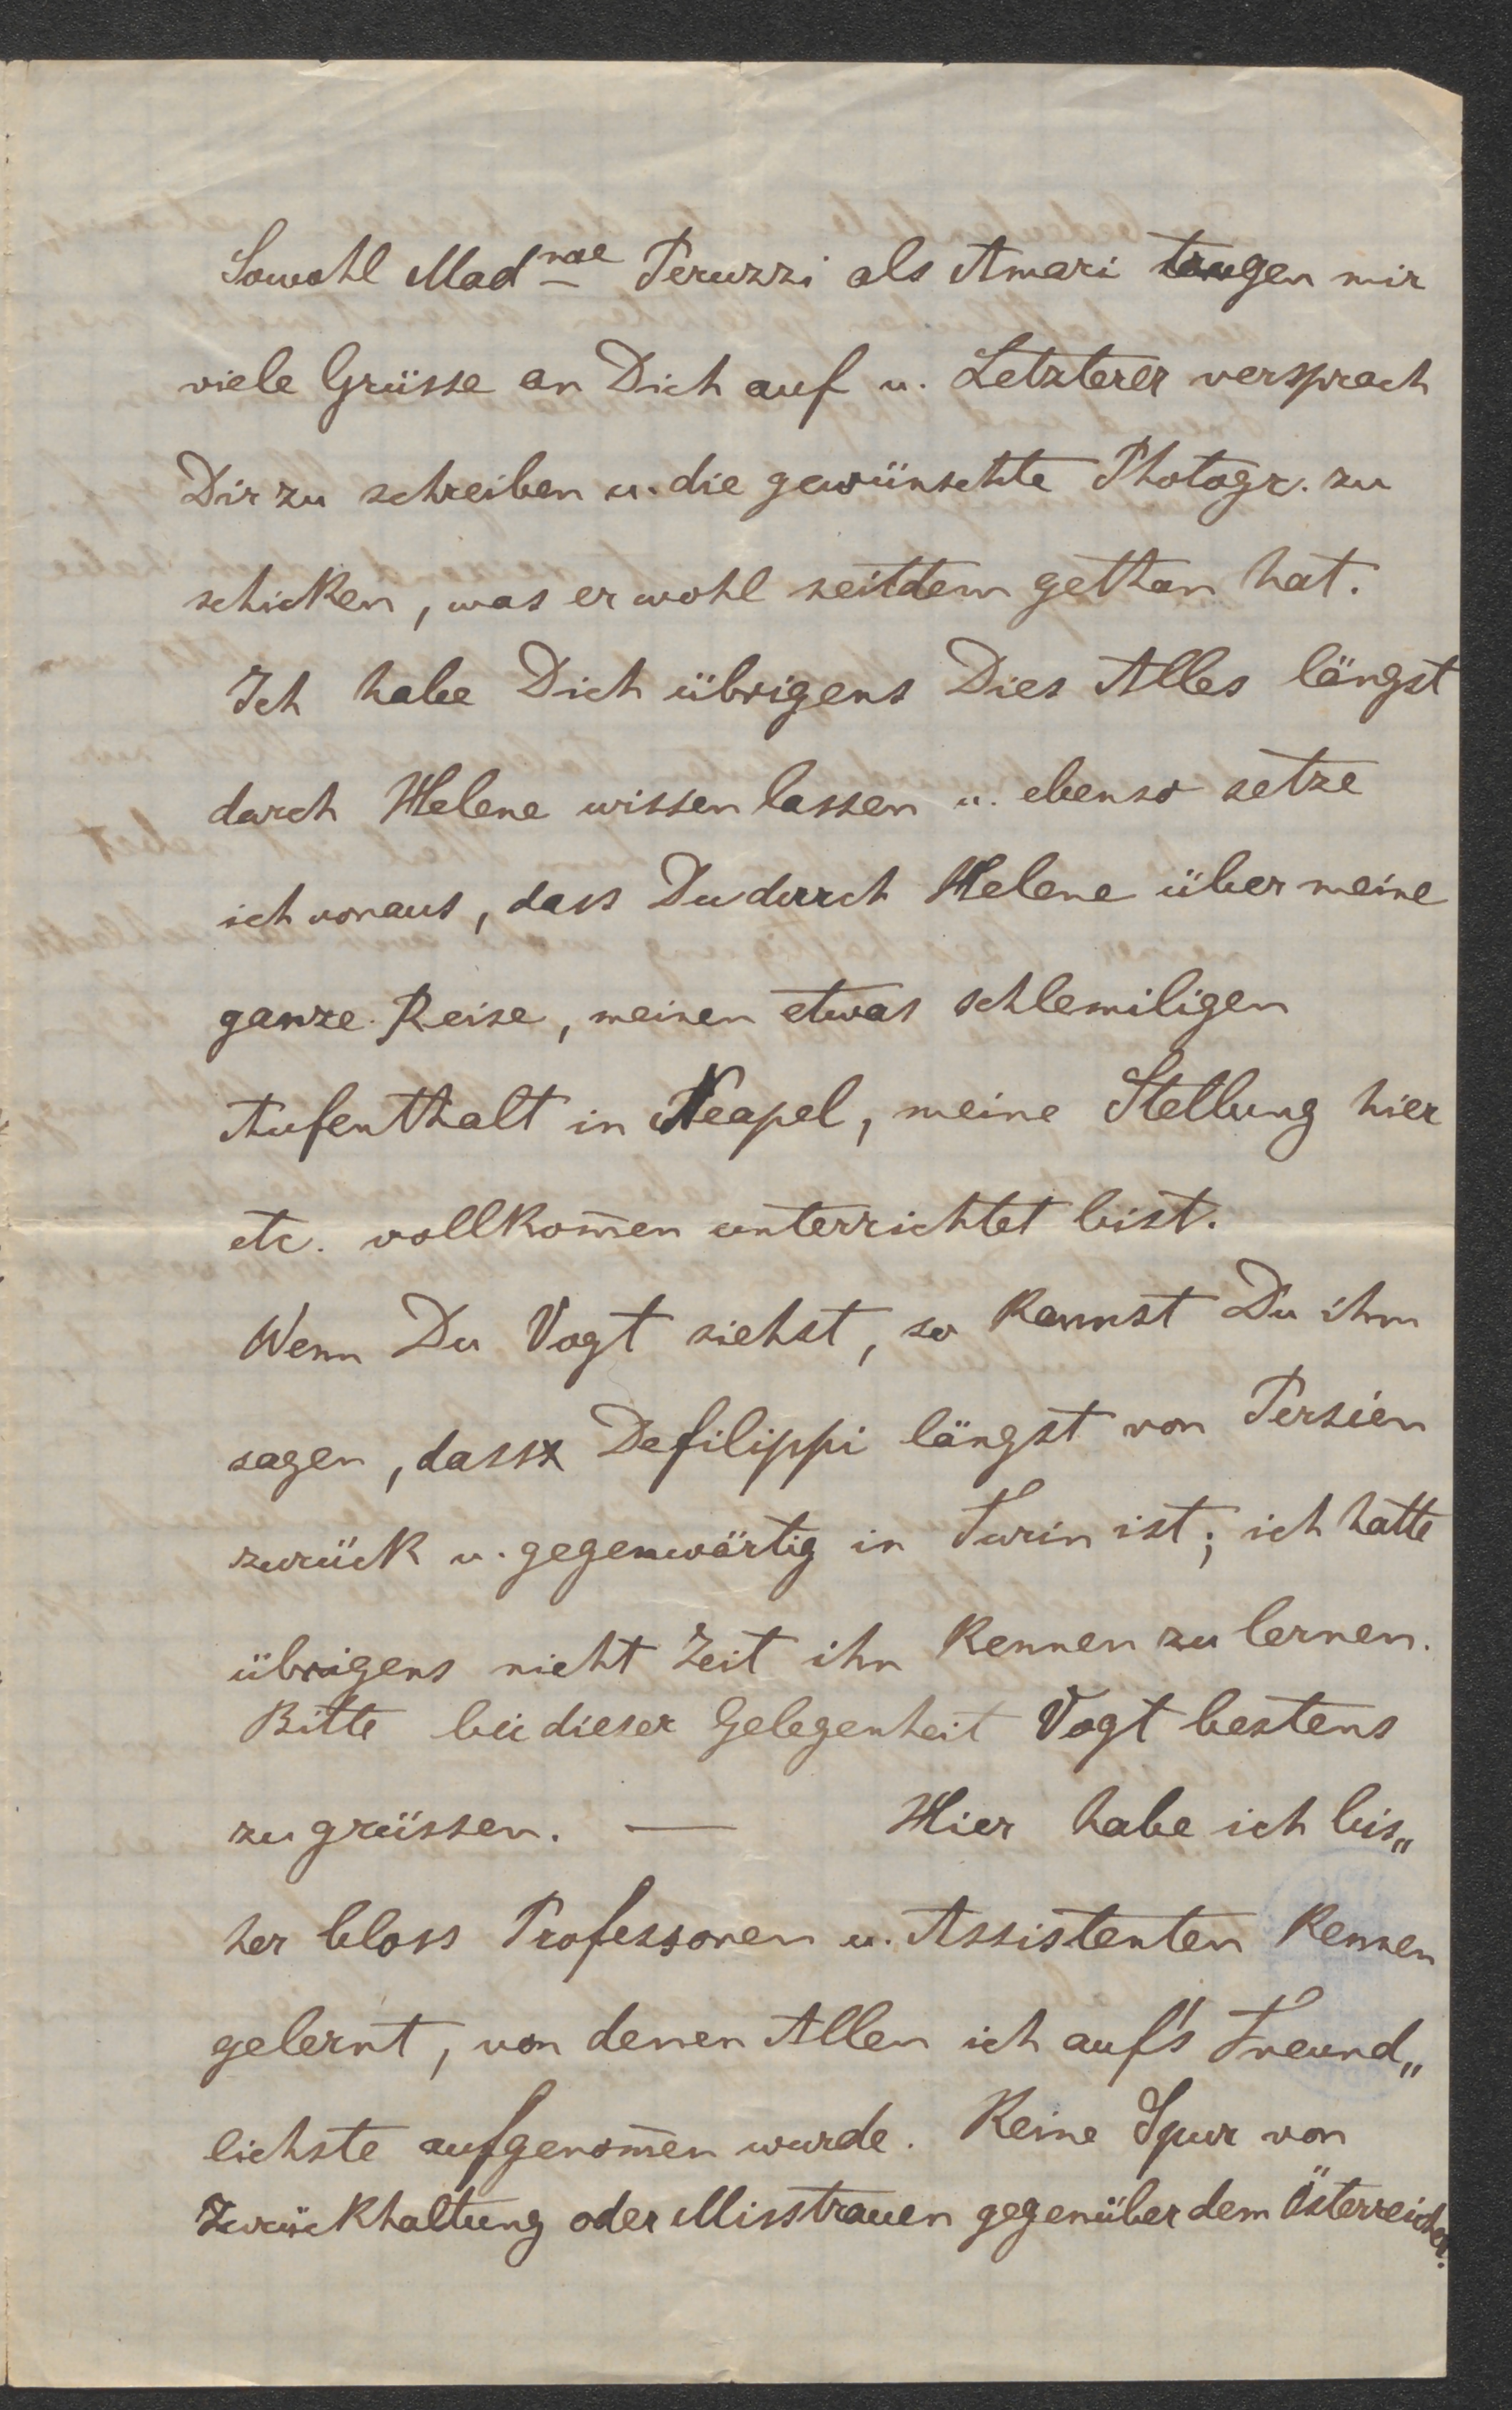 Sowohl Madme Peruzzi als Amari trugen mir
viele Grüsse an Dich auf u. Letzterer versprach
Dir zu schreiben u. die gewünschte Photogr. zu
schicken, was er wohl seitdem gethan hat.
Ich habe Dich übrigens Dies Alles längst
durch Helene wissen lassen u. ebenso setze
ich voraus, dass Du durch Helene über meine
ganze Reise, meinen etwas schlemiligen
Aufenthalt in Neapel, meine Stellung hier
etc. vollkom̅en unterrichtet bist.
Wenn Du Vogt siehst, so kannst Du ihm
sagen, dass Defilippi längst von Persien
zurück u. gegenwärtig in Turin ist; ich hatte
übrigens nicht Zeit ihn kennen zu lernen.
Bitte bei dieser Gelegenheit Vogt bestens
zu grüssen. — Hier habe ich bis„
her bloss Professoren u. Assistenten kennen
gelernt, von denen Allen ich auf's Freund„
lichste aufgenom̅en wurde. Keine Spur von
Zurückhaltung oder Misstrauen gegenüber dem Österreicher.